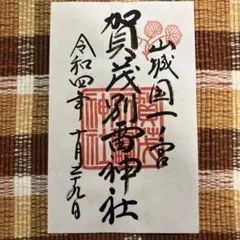 山城国一ノ宮
賀茂別雷神社
令和四年十月二十九日